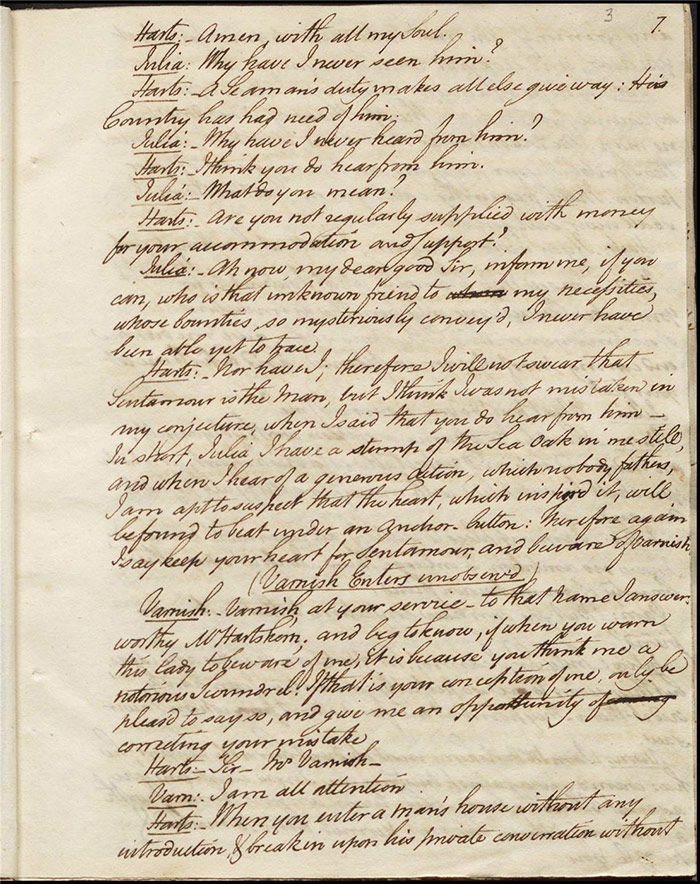 3 7.
Harts:- Amen, with all my Soul.
Julia: Why have I never seen him?
Harts:- A Seaman's duty makes all else give way: His
Country has had need of him.
Julia:- Why have I never heard from him?
Harts:- I think you do hear from him.
Julia:- What do you mean?
Harts:- Are you not regularly supplied with money
for your accommodation and support?
Julia:- Ah now, my dear good Sir, inform me, if you
can, who is that unknown friend to whom my necessities,
whose bounties, so mysteriously convey'd, I never have
been able yet to trace.
Harts:- Nor have I; therefore I will not swear that
Sentamour is the Man, but I think I was not mistaken in
my conjecture, when I said that you do hear from him—
In short, Julia, I have a stump of the Sea Oak in me still,
and when I hear of a generous action, which nobody fathers,
I am apt to suspect that the heart, which inspir'd it, will
be found to beat under an anchor-button: therefore again
I say keep your heart for Sentamour, and beware of Varnish
(Varnish Enters unobserv'd)
Varnish:- Varnish, at your service— to that name I answer.
worthy Mr Hartshorn; and beg to know, if when you warn
this lady to beware of me, it is because you think me a
notorious Scoundrel. If that is your conception of me, only be
pleas'd to say so, and give me an opportunity of
correcting your mistake
Harts— Sir— Mr Varnish—
Varn:- I am all attention
Harts:- When you enter a man's house without any
introduction, & break in upon his private conversation without